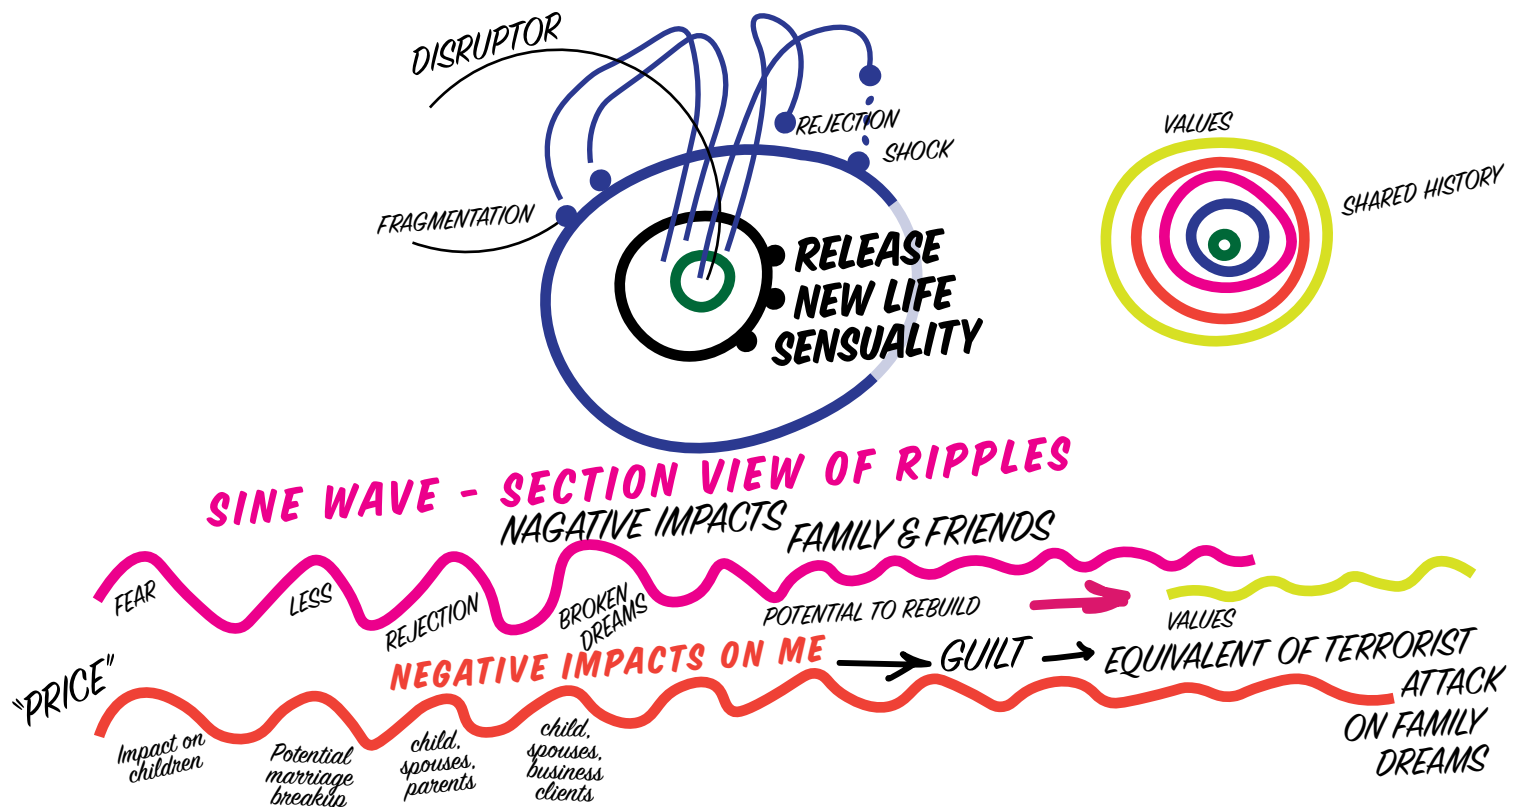 DISRUPTOR
REJECTION
SHOCK
FRAGMENTATION
RELEASE
NEW LIFE
SENSUALITY
VALUES
SHARED HISTORY
SINE WAVE - SECTION VIEW OF RIPPLES
NAGATIVE IMPACTS
FAMILY & FRIENDS
FEAR
LESS
REJECTION
BROKEN
DREAMS
POTENTIAL TO REBUILD
VALUES
"PRICE"
NEGATIVE IMPACTS ON ME
GUILT
EQUIVALENT OF TERRORIST
ATTACK
ON FAMILY
DREAMS
Impact on
children
Potential
marriage
breakup
child,
spouses,
parents
child,
spouses,
business
clients